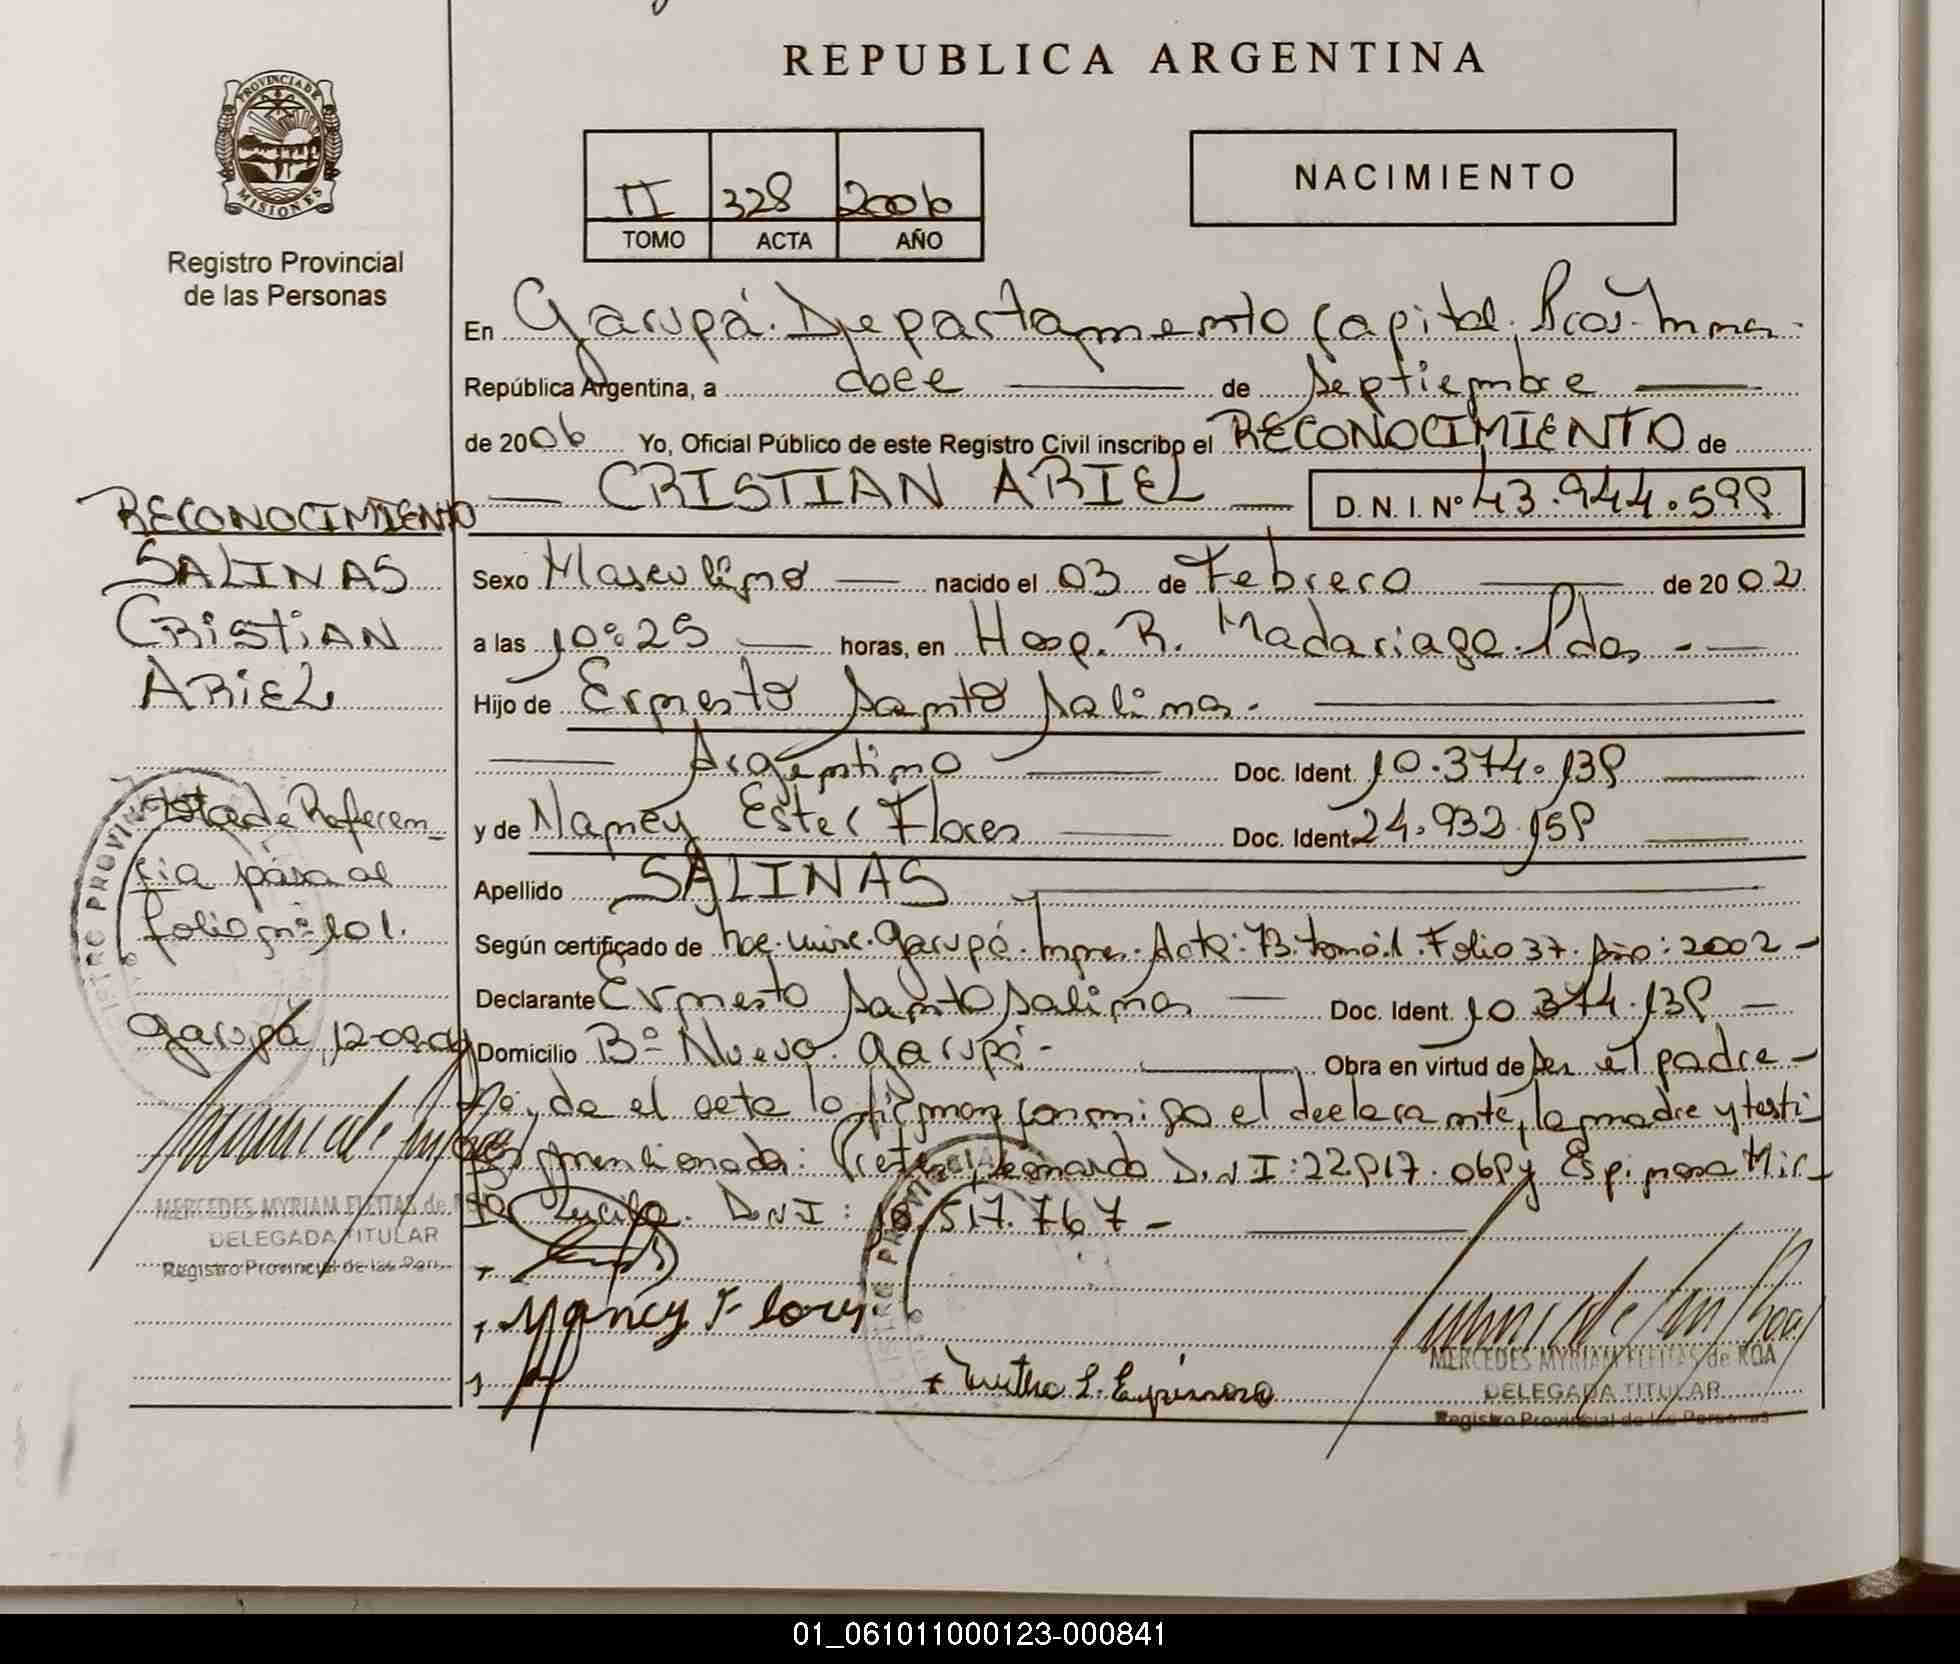 REPUBLICA ARGENTINA
PROVINCIA DE
MISIONES
Registro Provincial
de las Personas
II 328 2006
TOMO ACTA AÑO
NACIMIENTO
En Garupá. Departamento Capital.
República Argentina, a doce de Septiembre
de 2006 Yo, Oficial Público de este Registro Civil inscribo el RECONOCIMIENTO de
CRISTIAN ARIEL D. N. I. Nº 43.944.599
Sexo Masculino nacido el 03 de Febrero de 2002
a las 10:25 horas, en Hosp. R. Madariaga. Pdas
Hijo de Ernesto Santo Salinas.
Argentino Doc. Ident. 10.374.139
y de Nancy Ester Flores Doc. Ident. 24.932.159
Apellido SALINAS
Según certificado de Garupá. Acta: 73. tomo: 1. Folio 37. Año: 2002 -
Declarante Ernesto Santo Salinas Doc. Ident. 10.374.139
Domicilio Bº Nuevo. Garupá - Obra en virtud de ser el padre -
da el acta lo firman conmigo el declarante, la madre y testi
gos mencionados: Leonardo D.N.I: 22.917.069 y Espinosa Mir-
Lucila. D.N.I: 517.767 -
Nancy Flores
+ Mirtha L. Espinosa
MERCEDES MYRIAM FLEITAS de ROA
DELEGADA TITULAR
Registro Provincial de las Personas
RECONOCIMIENTO
SALINAS
CRISTIAN
ARIEL
Nota de Referen-
cia pasa al
folio nº 101.
Garupá, 12-09-06
REGISTRO PROVINCIAL
MERCEDES MYRIAM FLEITAS de ROA
DELEGADA TITULAR
Registro Provincial de las Pers.
01_061011000123-000841